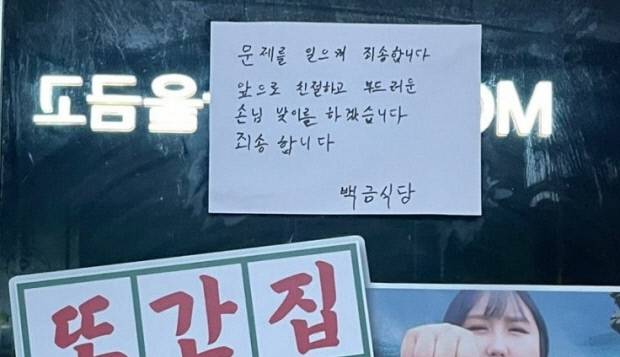 문제를 일으켜 죄송합니다
앞으로 친절하고 부드러운
손님 맞이를 하겠습니다
죄송합니다
백금식당
또간집